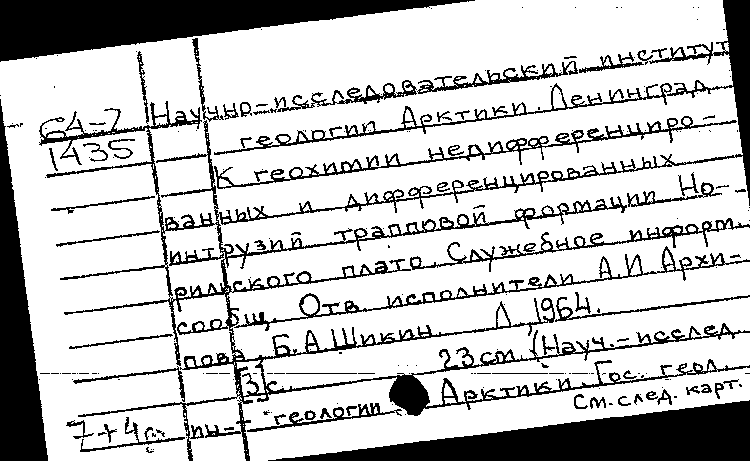 Научно-исследовательский институт
64-7
1435
геологии Арктики. Ленинград
К геохимии недифференциро-
ванных и дифференцированных
интрузий трапповой формации Но-
рильского плато. Служебное информ.
сообщ. Отв. исполнители А.И. Архи-
пова, Б.А. Шикин. Л, 1964.
[3]с. 23 см. (Науч.-исслед.
ин-т геологии Арктики. Гос. геол.
7+4
См. след. карт.